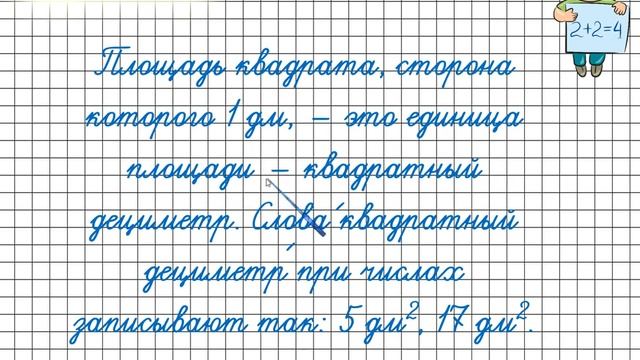 2+2=4
Площадь квадрата, сторона
которого 1 дм, – это единица
площади – квадратный
дециметр. Слова ′квадратный
дециметр′ при числах
записывают так: 5 дм², 17 дм².